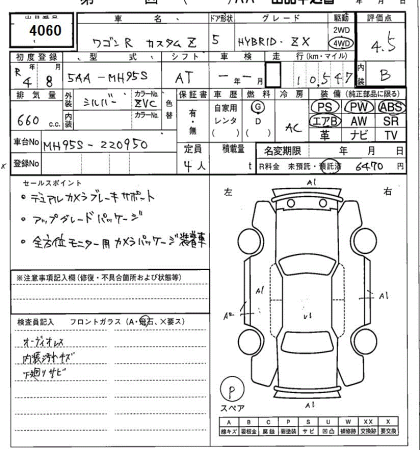 出品番号 車名 ドア形状 グレード 駆動 評価点
4060 ワゴンR カスタムZ 5 HYBRID・ZX 2WD 4WD 4.5
初度登録 型式 シフト 車検 走行(km・マイル) 内装
R4 8 5AA-MH95S AT -年-月 10,547 B
排気量 外装 カラーNo. 色替 保証書 車歴 燃料 冷房 装備(純正部品に限る)
660 c.c. シルバー ZVC 有・無 自家用 レンタ G D AC PS PW ABS
内装 カラーNo. エアB AW SR
革 ナビ TV
車台No MH95S-220950 定員 積載量 名変期限 年 月 日
登録No 4人 t R料金 未預託・預託済 6470円
セールスポイント
・デュアルカメラブレーキサポート
・アップグレードパッケージ
・全方位モニター用カメラパッケージ装着車
※注意事項記入欄(修復・不具合箇所および状態等)
検査員記入 フロントガラス(A・飛石、×要ス)
オーディオレス
内装汚れキズ
下廻りサビ
左 右
A1
A1
A2 A1 U1 A1
P
スペア
A1
A B C P S U W X XX
線キズ 要板金 腐蝕 要塗装 サビ 凹凸 補修跡 交換跡 要交換